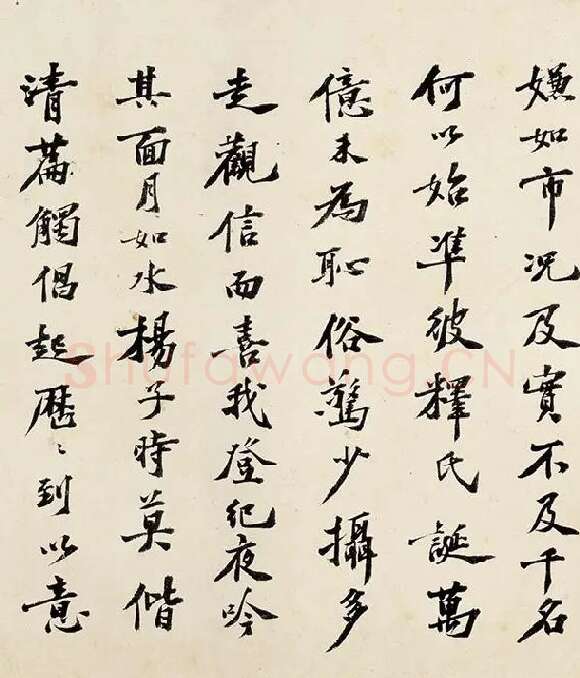 嫌如市况及實不及千名
何以始準彼釋氏誕萬
億未為恥俗驚少攝多
走觀信而喜我登紀夜吟
其面月如水楊子時莫偕
清篇觸倡起歷〻到以意
Shufawang.CN